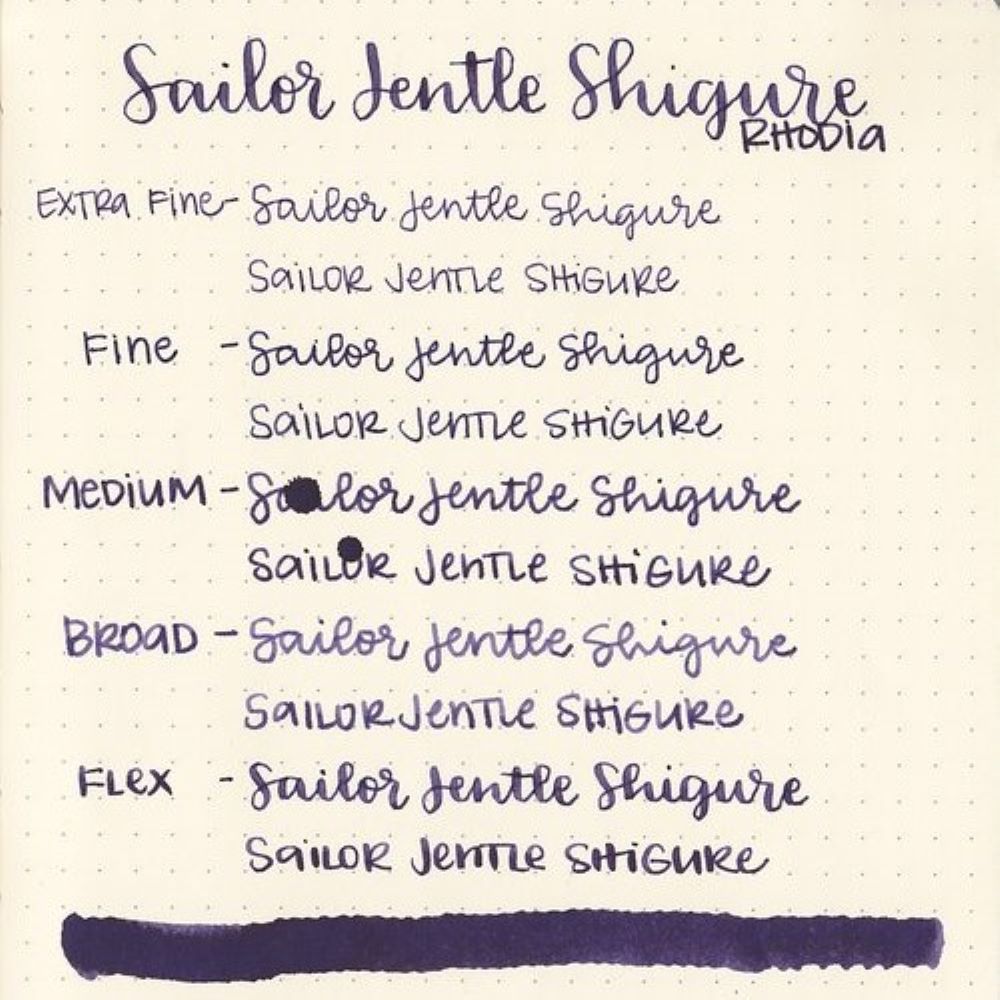 Sailor Jentle Shigure
RHODIA
EXTRA FINE - Sailor Jentle Shigure
SAILOR JENTLE SHIGURE
FINE - Sailor Jentle Shigure
SAILOR JENTLE SHIGURE
MEDIUM - Sailor Jentle Shigure
SAILOR JENTLE SHIGURE
BROAD - Sailor Jentle Shigure
SAILOR JENTLE SHIGURE
FLEX - Sailor Jentle Shigure
SAILOR JENTLE SHIGURE